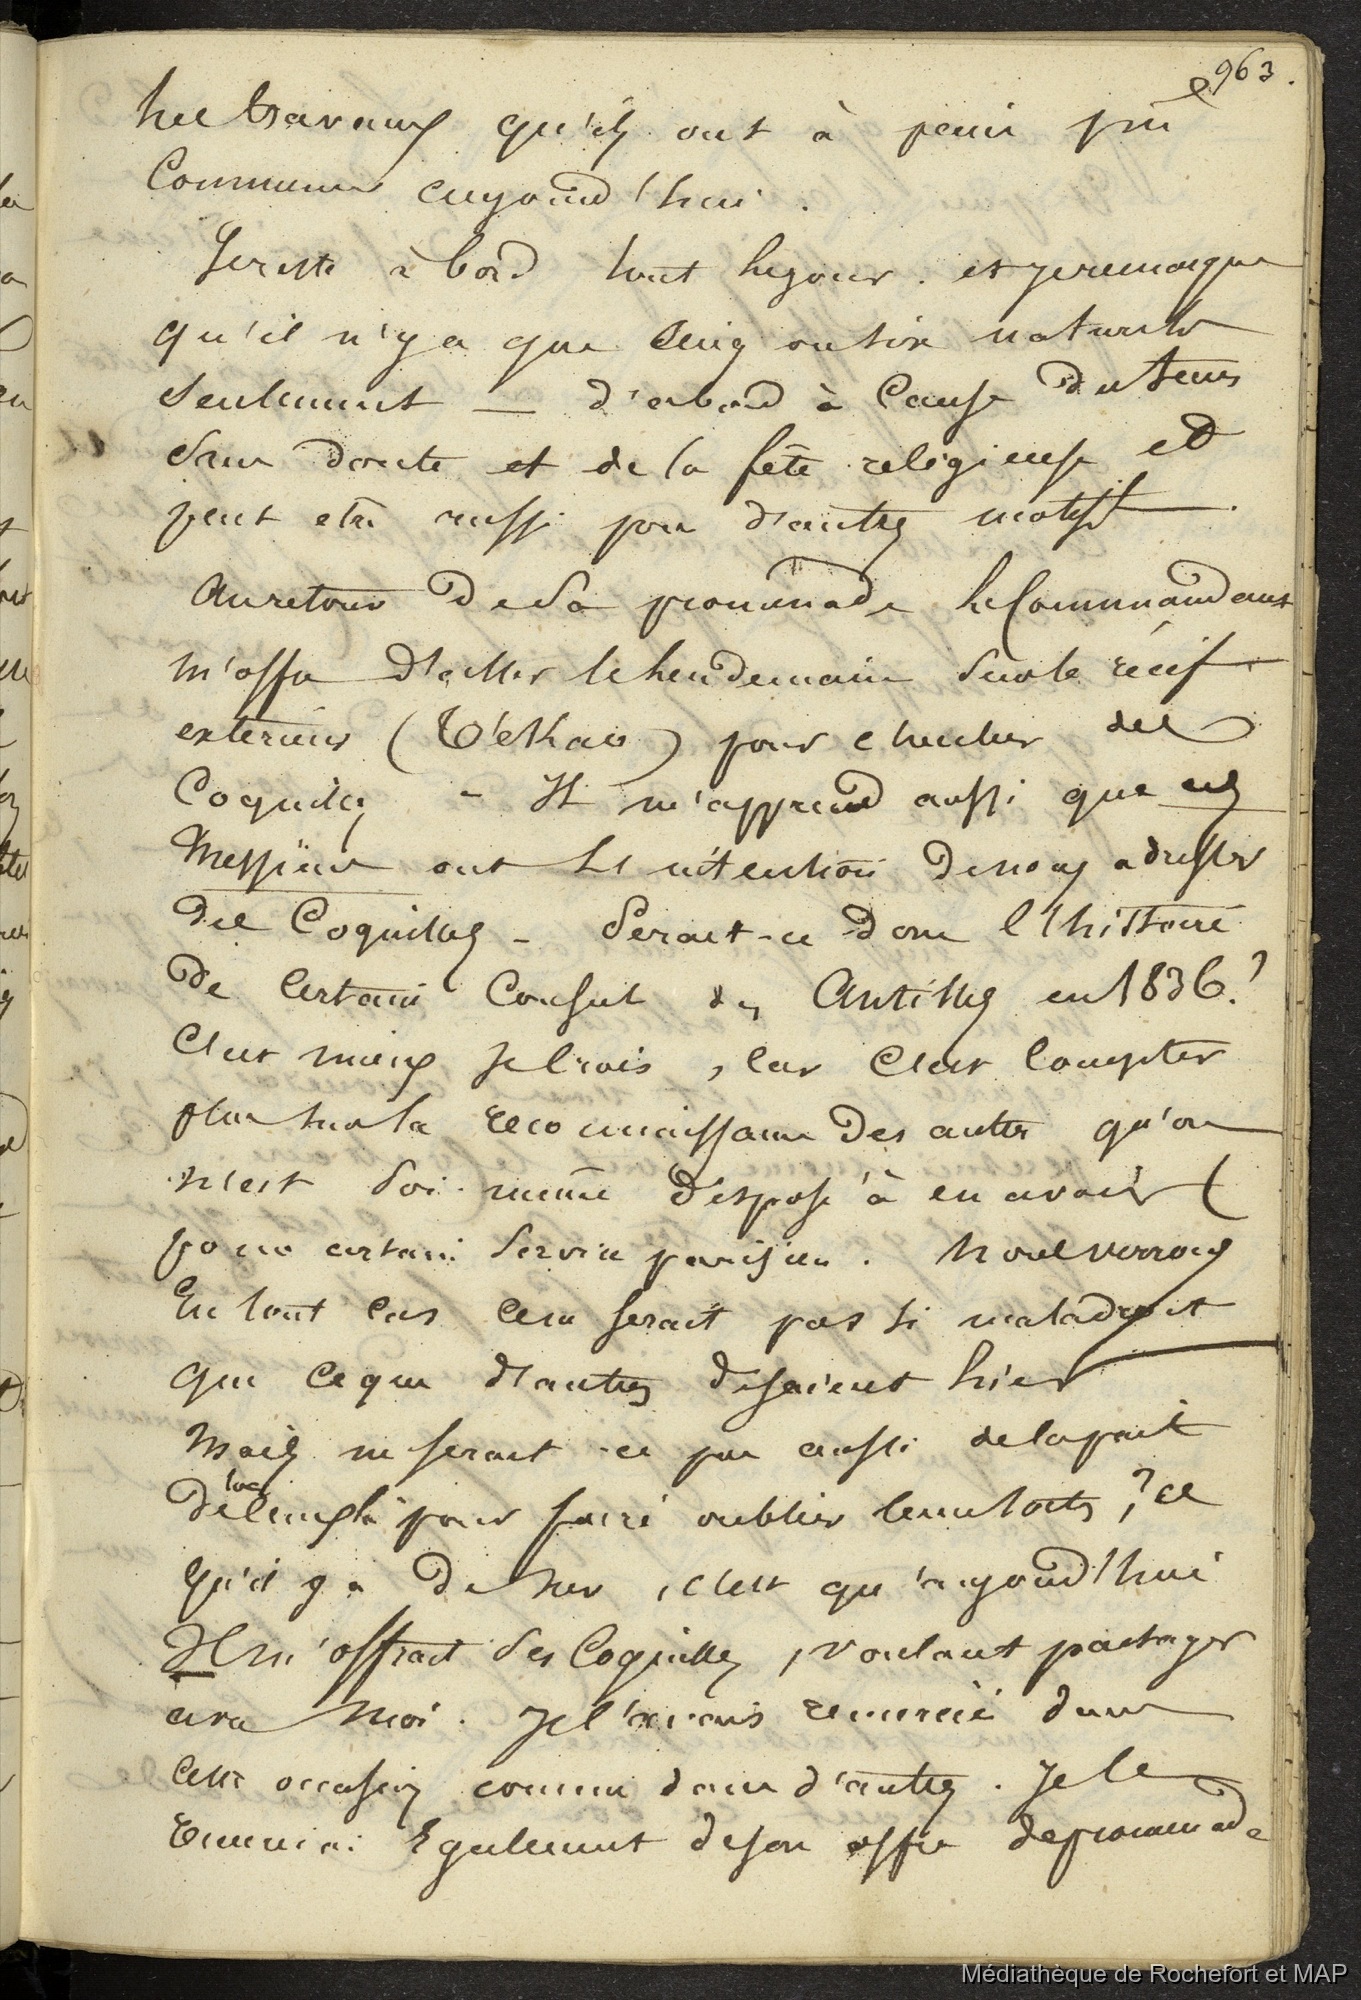 963.
les travaux qu'ils ont à peine pu
Commencer aujourd'hui.
Je reste à bord tout le jour. et je remarque
qu'il n'y a que cinq ou six naturels
seulement — d'abord à cause du tems
sans doute et de la fête religieuse et
peut etre aussi pour d'autres motifs.
Au retour de sa promenade le Commandant
m'offre d'aller le lendemain sur le récif
exterieur ( ) pour chercher des
Coquilles - Il m'apprend aussi que ces
Messieurs ont l'intention de nous adresser
des Coquilles - Serait-ce donc l'histoire
de certain Consul des Antilles en 1836?
C'est mieux je crois, car c'est compter
plus sur la reconnaissance des autres qu'on
n'est soi-même disposé à en avoir (
pour certain service parisien. Nous verrons
En tout cas ce ne serait pas si maladroit
que ce que d'autres disaient hier
Mais ne serait-ce pas aussi de la part
de pour faire oublier leurs torts,? ce
qu'il y a de sur, c'est qu'aujourd'hui
Il m'offrait des Coquilles, voulant partager
avec moi. Je l'avais remercié dans
cette occasion comme dans d'autres. Je le
remerciai également de son offre de promenade
Médiathèque de Rochefort et MAP